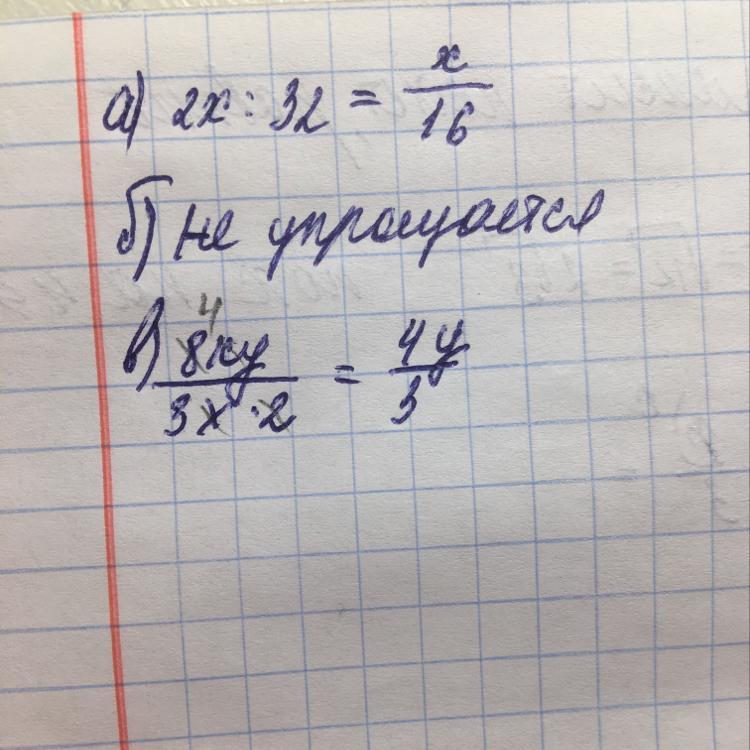 а) 2x : 32 = x/16
б) не упрощается
4
в) 8xy/3x · 2 = 4y/3